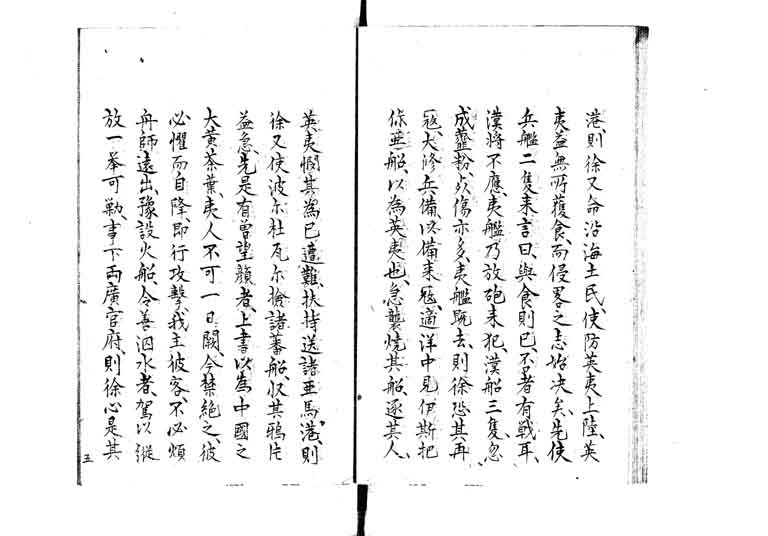 港則徐又命沿海土民、使防英夷上陸、英
夷益無所獲食、而侵畧之志始决矣、先使
兵艦二隻来言曰、與食則已、不者有戦耳、
漢将不應、夷艦乃放砲来犯、漢船三隻忽
成虀粉、死傷亦多、夷艦既去、則徐恐其再
寇、大修兵備、以備来寇、適洋中見伊斯把
你亜船、以為英夷也、急襲焼其船、逐其人、
英夷憫其為已遭難、扶持送諸亜馬港、則
徐又使波尓杜瓦尓撿諸蕃船、収其鴉片
益急、先是有曽望顔者、上書以為中國之
大黄茶葉夷人不可一日闕、今禁絶之、彼
必懼而自降、即行攻撃、我主彼客、不必煩
舟師遠出、豫設火船、令善泅水者、駕以縦
放一挙可勦、事下両廣官府、則徐心是其
五